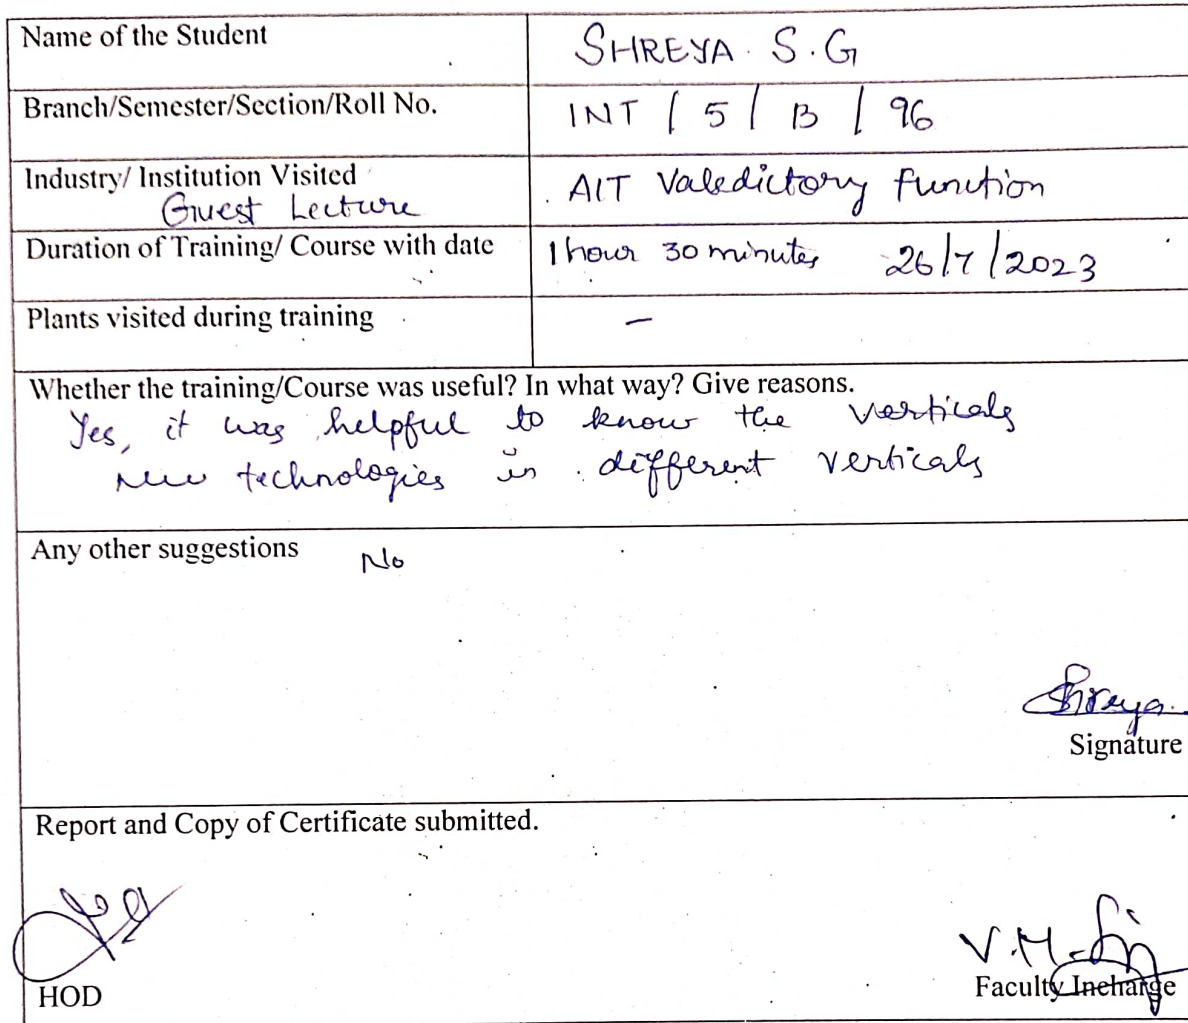 Name of the Student SHREYA. S.G
Branch/Semester/Section/Roll No. INT / 5 / B / 96
Industry/ Institution Visited AIT Valedictory function
Guest Lecture
Duration of Training/ Course with date 1 hour 30 minutes 26/7/2023
Plants visited during training –
Whether the training/Course was useful? In what way? Give reasons.
Yes, it was helpful to know the verticals
New technologies in different verticals
Any other suggestions No
Shreya
Signature
Report and Copy of Certificate submitted.
V.M.
HOD Faculty Incharge